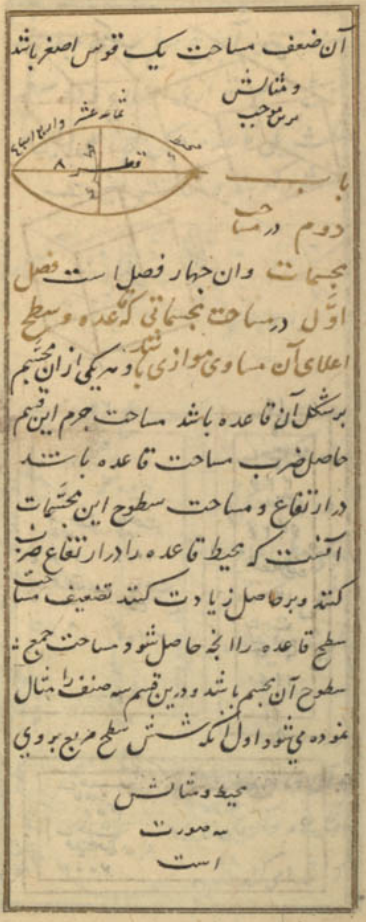 آن ضعف مساحت یک قوس اصغر باشد
و مثالش
برین موجب
ثمانیه عشر و اربع اسباع
محیط
قطر ۸
باب
دوم در مساحت
مجسمات و ان چهار فصل است فصل
اول در مساحت مجسماتی که قاعده و سطح
اعلای آن مساوی موازی باشند و هر یکی از ان مجسم
بر شکل آن قاعده باشد مساحت جرم این قسم
حاصل ضرب مساحت قاعده باشد
در ارتفاع و مساحت سطوح این مجسّمات
آنست که محیط قاعده را در ارتفاع ضرب
کنند و بر حاصل زیادت کنند تضعیف مساحت
سطح قاعده را انچه حاصل شود مساحت جمیع
سطوح آن مجسم باشد و درین قسم سه صنف را مثال
نموده می شود اول آنکه شش سطح مربع بر وی
محیط و مثالش
صورت
است